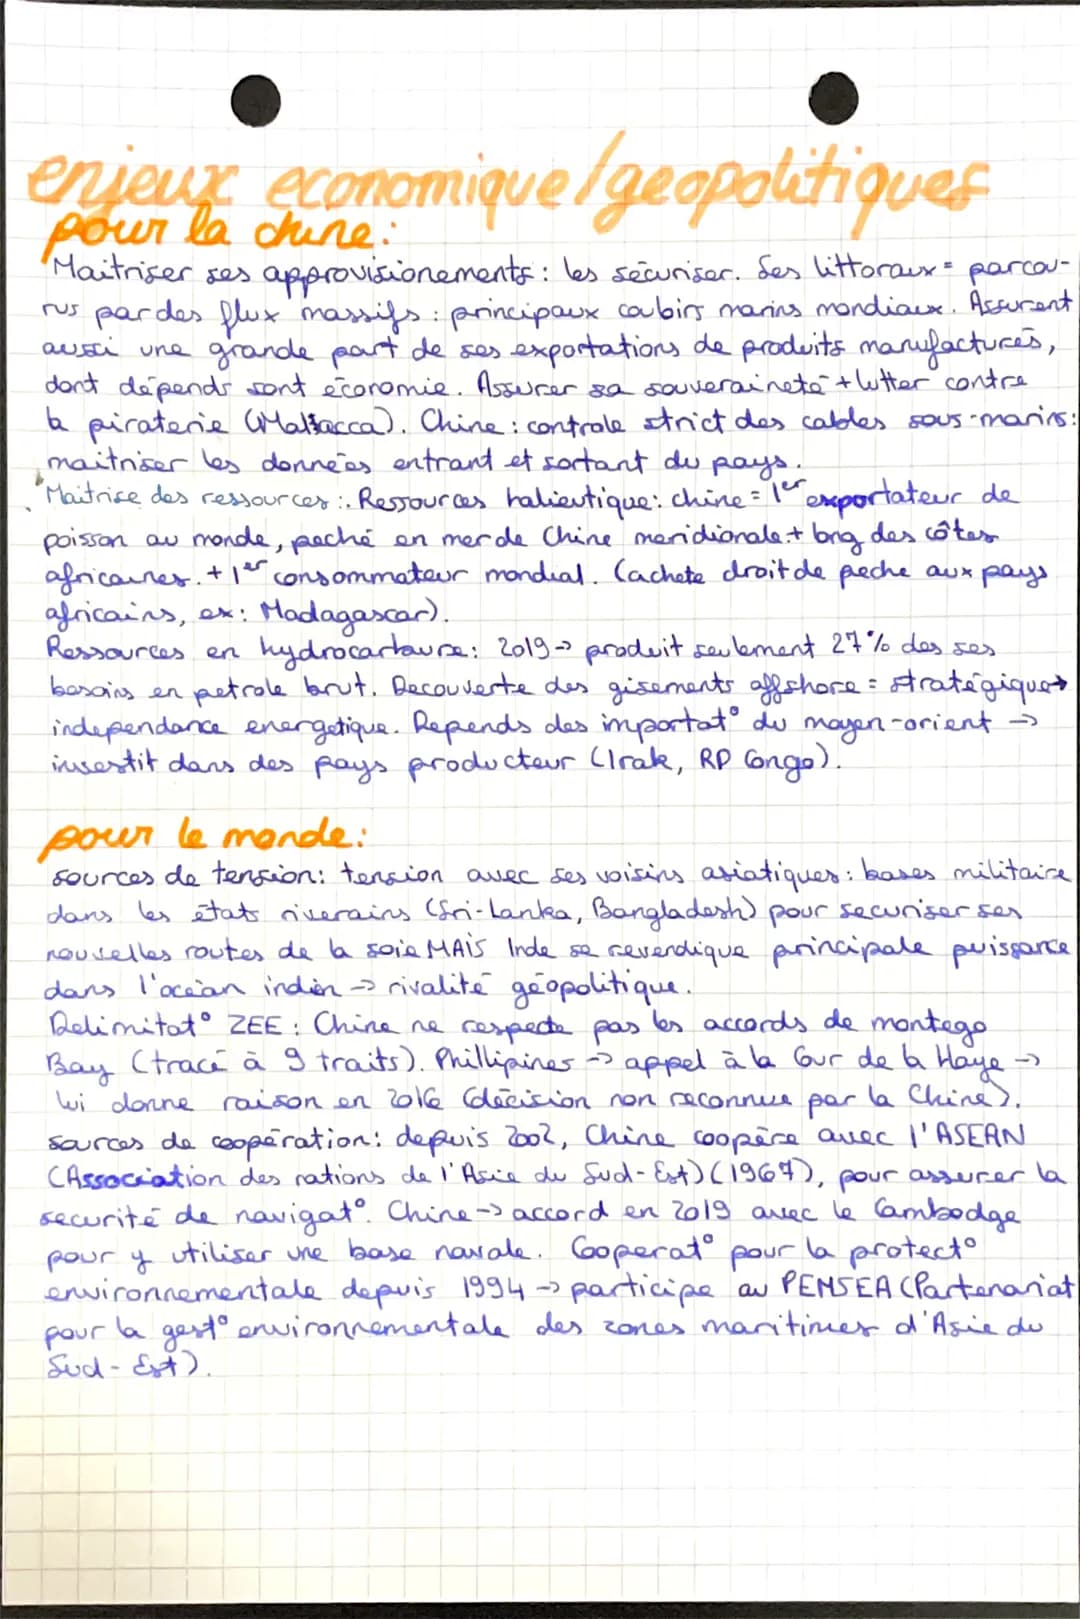 enjeux economique/geopolitiques
pour la chine:
Maitriser ses approvisionements: les sécuriser. Ses littoraux = parcou-
rus par des flux massifs: principaux coubirs marins mondiaux. Assurent
aussi une grande part de ses exportations de produits manufacturés,
dont dépends sont économie. Assurer sa souveraineté + lutter contre
la piraterie (Malacca). Chine: controle strict des cables sous-marins:
maitriser les données entrant et sortant du pays.
Maitrise des ressources: Ressources halieutique: chine = 1er exportateur de
poisson au monde, peché en mer de Chine meridionale + long des côtes
africaines. + 1er consommateur mondial. (achete droit de peche aux pays
africains, ex: Madagascar).
Ressources en hydrocarbure: 2019 -> produit seulement 27% des ses
besoins en petrole brut. Decouverte des gisements offshore = stratégique ->
independance energetique. Depends des importat° du moyen-orient ->
investit dans des pays producteur (Irak, RP Congo).
pour le monde:
sources de tension: tension avec ses voisins asiatiques: bases militaire
dans les états riverains (Sri-Lanka, Bangladesh) pour securiser ses
nouvelles routes de la soie MAIS Inde se revendique principale puissance
dans l'océan indien -> rivalité géopolitique.
Delimitat° ZEE: Chine ne respecte pas les accords de montego
Bay (tracé à 9 traits). Phillipines -> appel à la Cour de la Haye ->
lui donne raison en 2016 (décision non reconnue par la Chine).
sources de coopération: depuis 2002, Chine coopère avec l'ASEAN
(Association des nations de l'Asie du Sud-Est) (1967), pour assurer la
securité de navigat°. Chine -> accord en 2019 avec le Cambodge
pour y utiliser une base navale. Cooperat° pour la protect°
environnementale depuis 1994 -> participe au PEMSEA (Partenariat
pour la gest° environnementale des zones maritimes d'Asie du
Sud-Est).